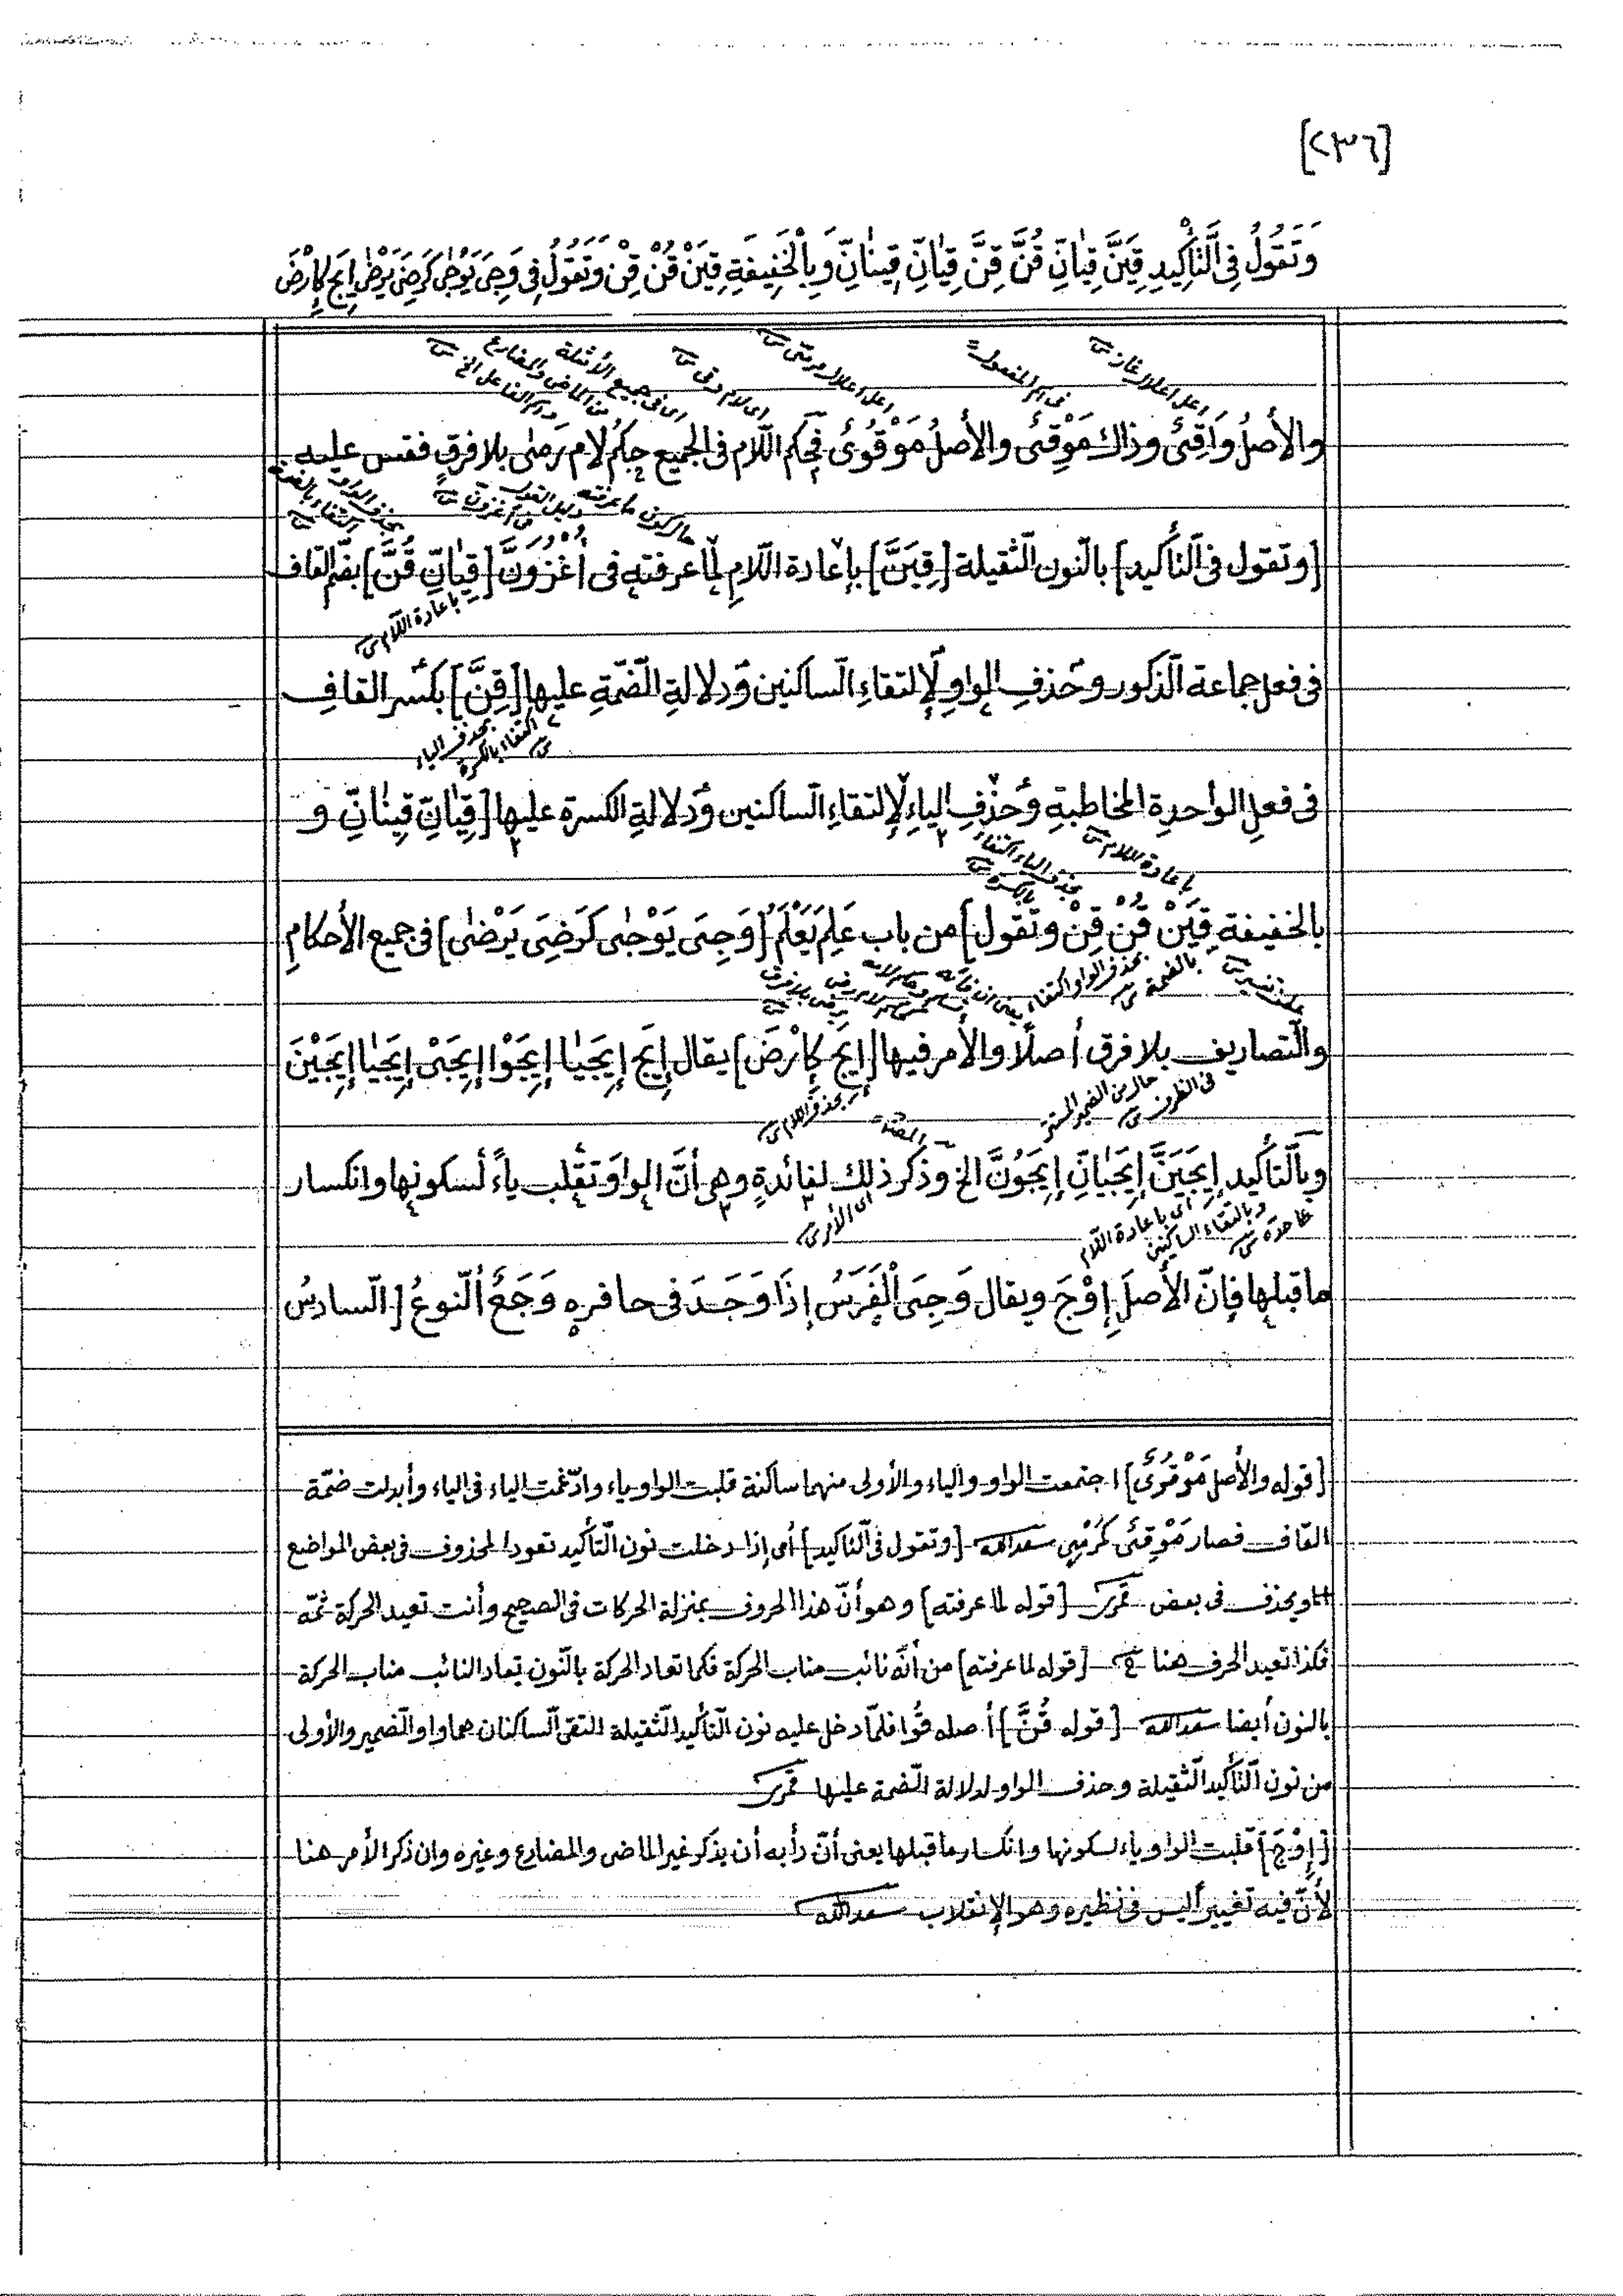 [٢٣٦]
وَتَقُولُ فِي التَّأْكِيدِ قِيَنَّ قِيَانِّ قُنَّ قِنَّ قِيَانِّ قِينَانِّ وَبِالْخَفِيفَةِ قِيَنْ قُنْ قِنْ وَتَقُولُ فِي وَجِيَ يَوْجٰى كَرَضِيَ يَرْضٰى اِيجَ كَاِرْضَ
اعل اعلال غاز
فى اسم المفعول
اعل اعلال مرمى
اى لام وقى
اى فى جميع الأمثلة
من الماضى والمضارع
واسم الفاعل الخ
والأصلُ وَاقِىٌ وذاك مَوْقِىٌّ والأصلُ مَوْقُوىٌ فحكم اللّام فى الجميع حكمُ لام رَمىٰ بلا فرقٍ فقس عليه
[وتقول فى التّأكيد] بالنّون الثّقيلة [قِيَنَّ] بإعادة اللّامِ لما عرفته فى أُغْزُوَنَّ [قِيٰانِّ قُنَّ] بضمّ القاف
باعادة اللّام
فى فعل جماعة الذّكور وحَذفِ الواوِ لإلتقاءِ السّاكنين وَدلالةِ الضّمّةِ عليها [قِنَّ] بكسر القافِ
بحذف الياء
اكتفاء بالكسرة
فى فعلِ الواحدةِ المخاطبةِ وَحذْفِ الياءِ لإلتقاءِ السّاكنين وَدلالةِ الكسرة عليها [قِيٰانِّ قِينٰانِّ و
باعادة اللام
بحذف الياء اكتفاء
بالكسرة
بالخفيفة قِيَنْ قُنْ قِنْ وتقول] من باب عَلِمَ يَعْلَمُ [وَجِىَ يَوْجٰى كَرَضِىَ يَرْضٰى] فى جميع الأحكامِ
بحذف الواو اكتفاء
بالضمة
والتّصاريف بلا فرق أصلًا والأمر فيها [اِيجَ كَاِرْضَ] يقال إِيجَ إِيجَيٰا إِيجَوْا إِيجَىْ إِيجَيٰا إِيجَيْنَ
فى الظرف
حال من الضمير المستتر
بحذف اللام
وبالتّأكيد إِيجَيَنَّ إِيجَيٰانِّ إِيجَوُنَّ الخ وذكر ذلك لفائدةٍ وهى أنَّ الواوَ تقلب ياءً لسكونها وانكسار
اى باعادة اللّام
وبالتقاء الساكنين
اى الأمر
ما قبلها فإنّ الأصلَ إِوْجَ ويقال وَجِىَ الْفَرَسُ إِذَا وَجَدَ فى حافره وَجَعًا النّوعُ [السّادسُ
[قوله والأصل مَوْقُوىٌ] اجتمعت الواو والياء والأولى منهما ساكنة قلبت الواو ياء وادّغمت الياء فى الياء وأبدلت ضمّة
القاف فصار مَوْقِىٌّ كَرْمِيّ سعدالله [وتقول فى التّأكيد] أى إذا دخلت نون التّأكيد تعود المحذوف فى بعض المواضع
ويحذف فى بعض [قوله لما عرفته] وهو أنّ هذا الحروف بمنزلة الحركات فى الصحيح وأنت تعيد الحركة ثمّه
فكذا تعيد الحرف هنا [قوله لما عرفته] من أنّه نائب مناب الحركة فكما تعاد الحركة بالنّون تعاد النائب مناب الحركة
بالنون أيضا سعدالله [قوله قُنَّ] أصله قُوا فلمّا دخل عليه نون التّأكيد الثّقيلة التقى السّاكنان هما واو الضمير والأولى
من نون التّأكيد الثّقيلة وحذف الواو لدلالة الضّمة عليها
[إِوْجَ] قلبت الواو ياء لسكونها وانكسار ما قبلها يعنى أنّ دأبه أن يذكر غير الماضى والمضارع وغيره وان ذكر الأمر هنا
لأنّ فيه تغيير أليس فى نظيره وهو الإنقلاب سعدالله